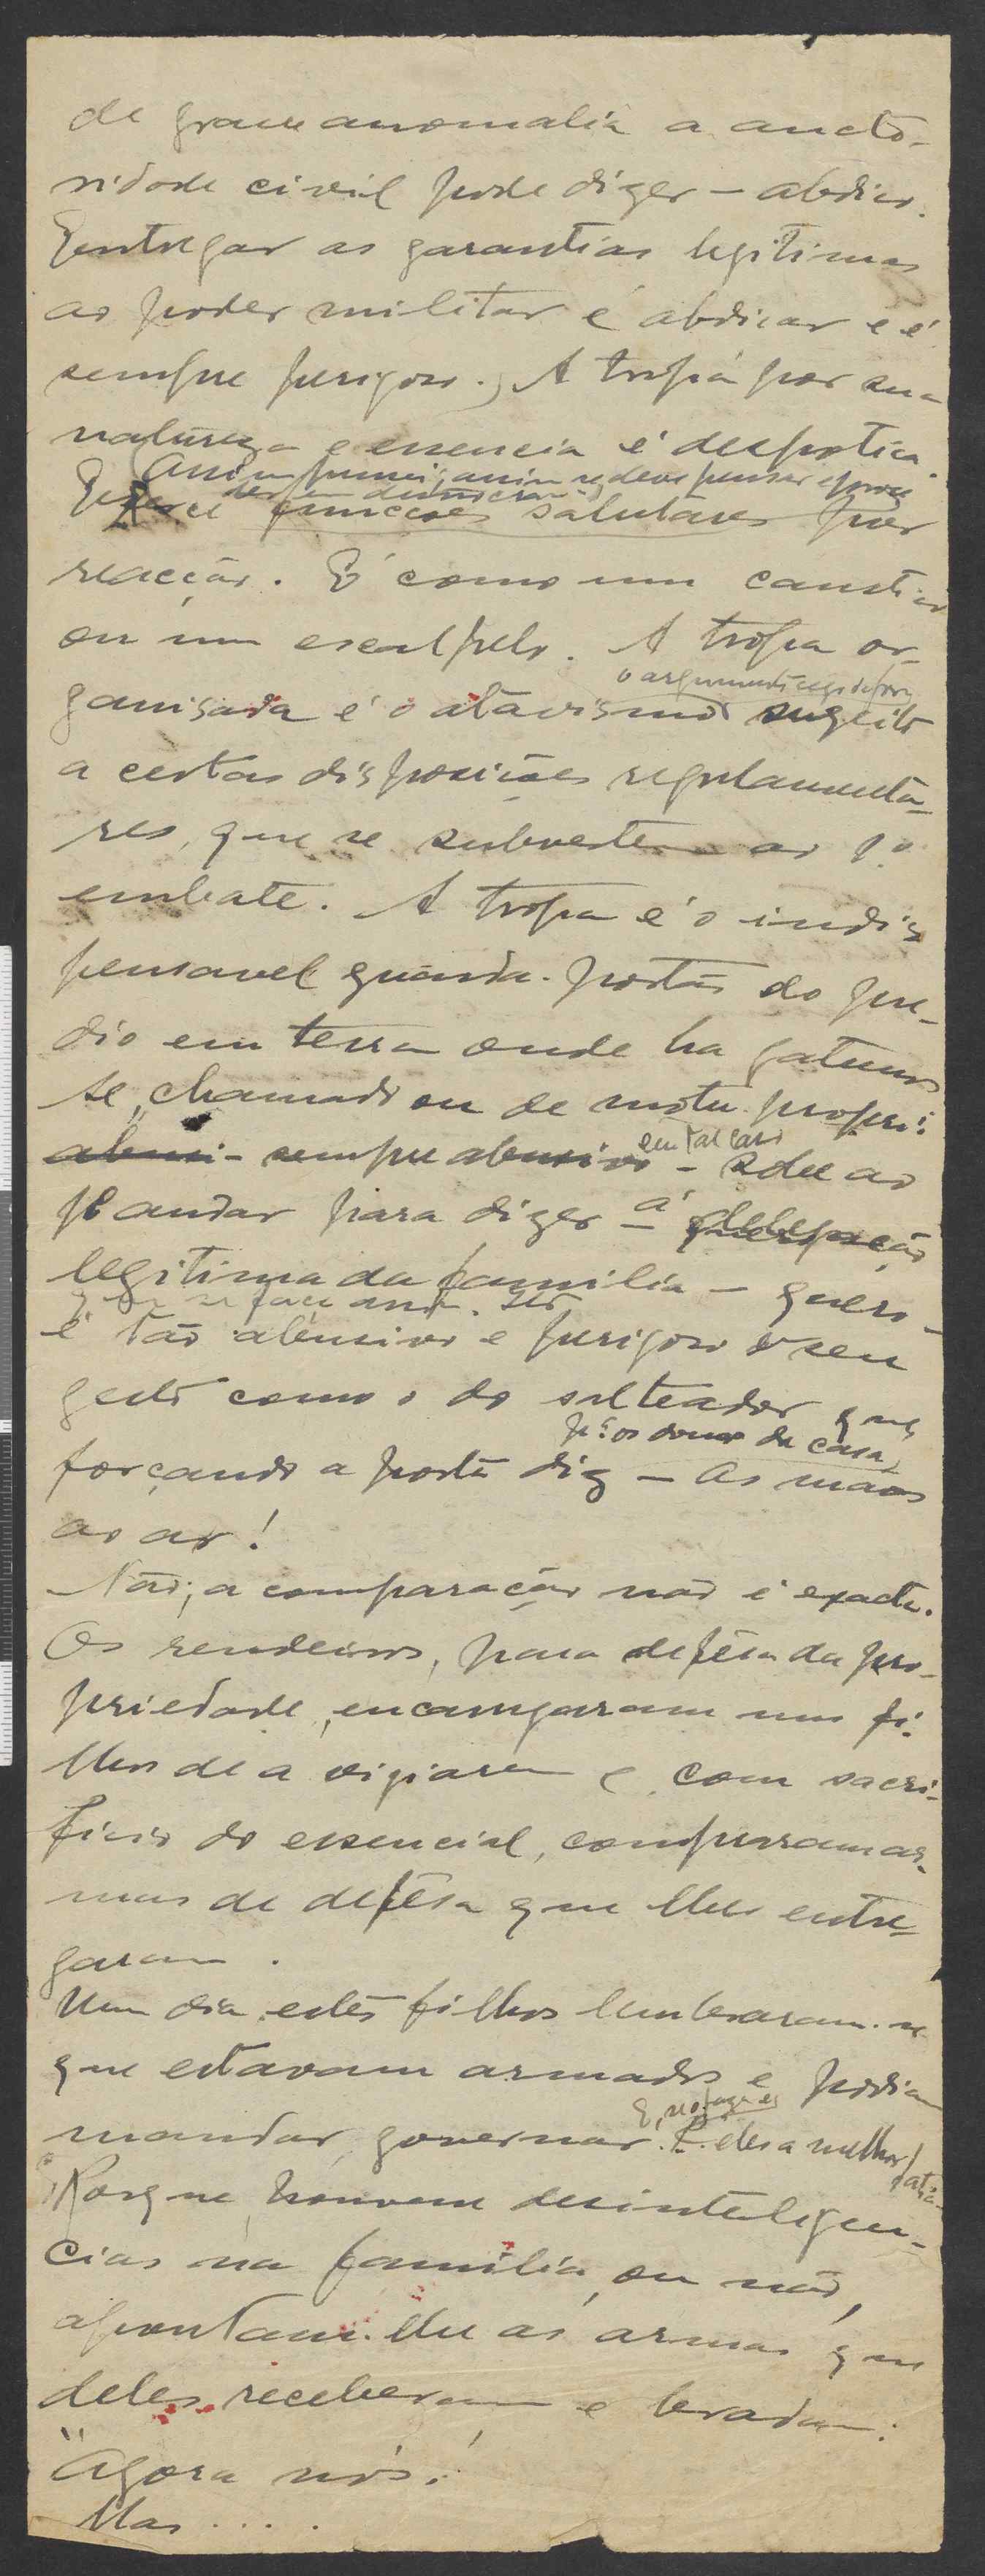 de grave anomalia a aucto-
ridade civil pode dizer – abdico.
Entregar as garantias legitimas
ao poder militar é abdicar e é
sempre perigoso. A tropa por sua
natureza e essencia é despotica.
Assim pensei; assim se deve pensar
Exerce funccões salutares por
reacção. É como um caustico
ou um escalpelo. A tropa or-
o argumento
ganisada é o atavismo sugeito
a certas disposições regulamenta-
res, que se subvertem ao 1º
embate. A tropa é o indis
pensavel guarda-portão do pre-
dio em terra onde ha gatunos
Se, chamado ou de motu-proprio
em tal caso
abusi- sempre abusivo – sobe ao
1º andar para dizer – á delegação
legitima da familia – quero –
é tão abusivo e perigoso o seu
gesto como o do salteador que,
pª os donos da casa,
forçando a porta diz – As mãos
ao ar!
Não; a comparação não é exacta.
Os rendeiros, para defêsa da pro-
priedade, encarregaram uns fi-
lhos de a vigiarem e, com sacri-
ficio do essencial, compraram ar-
mas de defêsa que lhes entre-
garam.
Um dia estes filhos lembraram-se
que estavam armados e podiam
mandar, governar. E deles a melhor fatia
Porque houvem desinteligen-
cias na familia, ou não,
apontam-lhe as armas que
deles receberam e bradam:
"Agora nós!
Mas ....